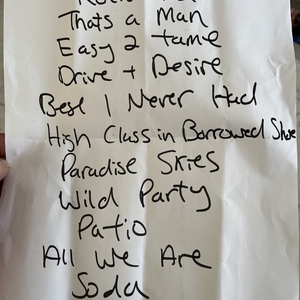 Thats a Man
Easy 2 tame
Drive + Desire
Best I Never Had
High Class in Borrowed Shoe
Paradise Skies
Wild Party
Patio
All We Are
Soda